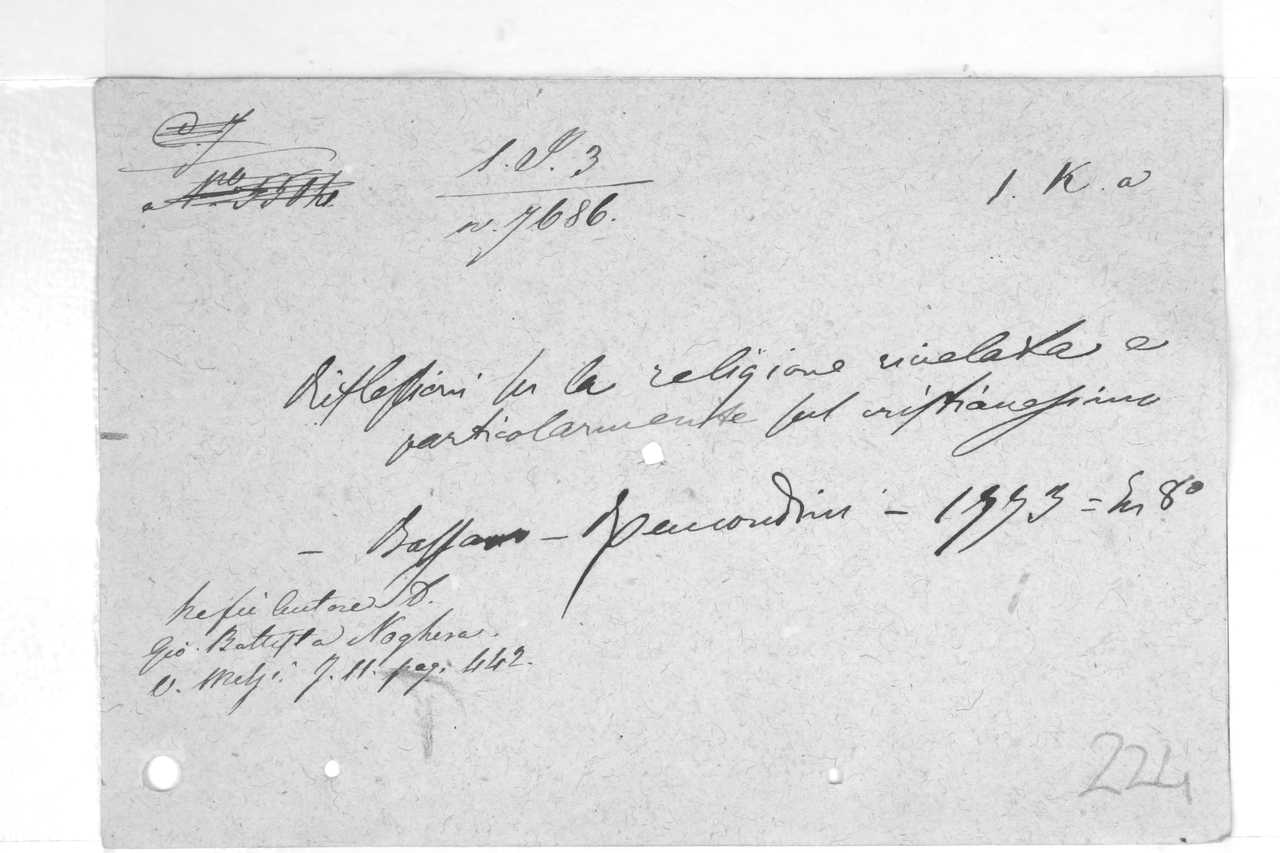 1. P. 3
n. 7686.
1. K. a
Riflessioni su la religione rivelata e
particolarmente sul cristianesimo
- Bassano - Remondini - 1773 = In 8°
Ne fu autore
Gio. Battista Noghera.
v. Melzi. T. II. pag. 442.
224